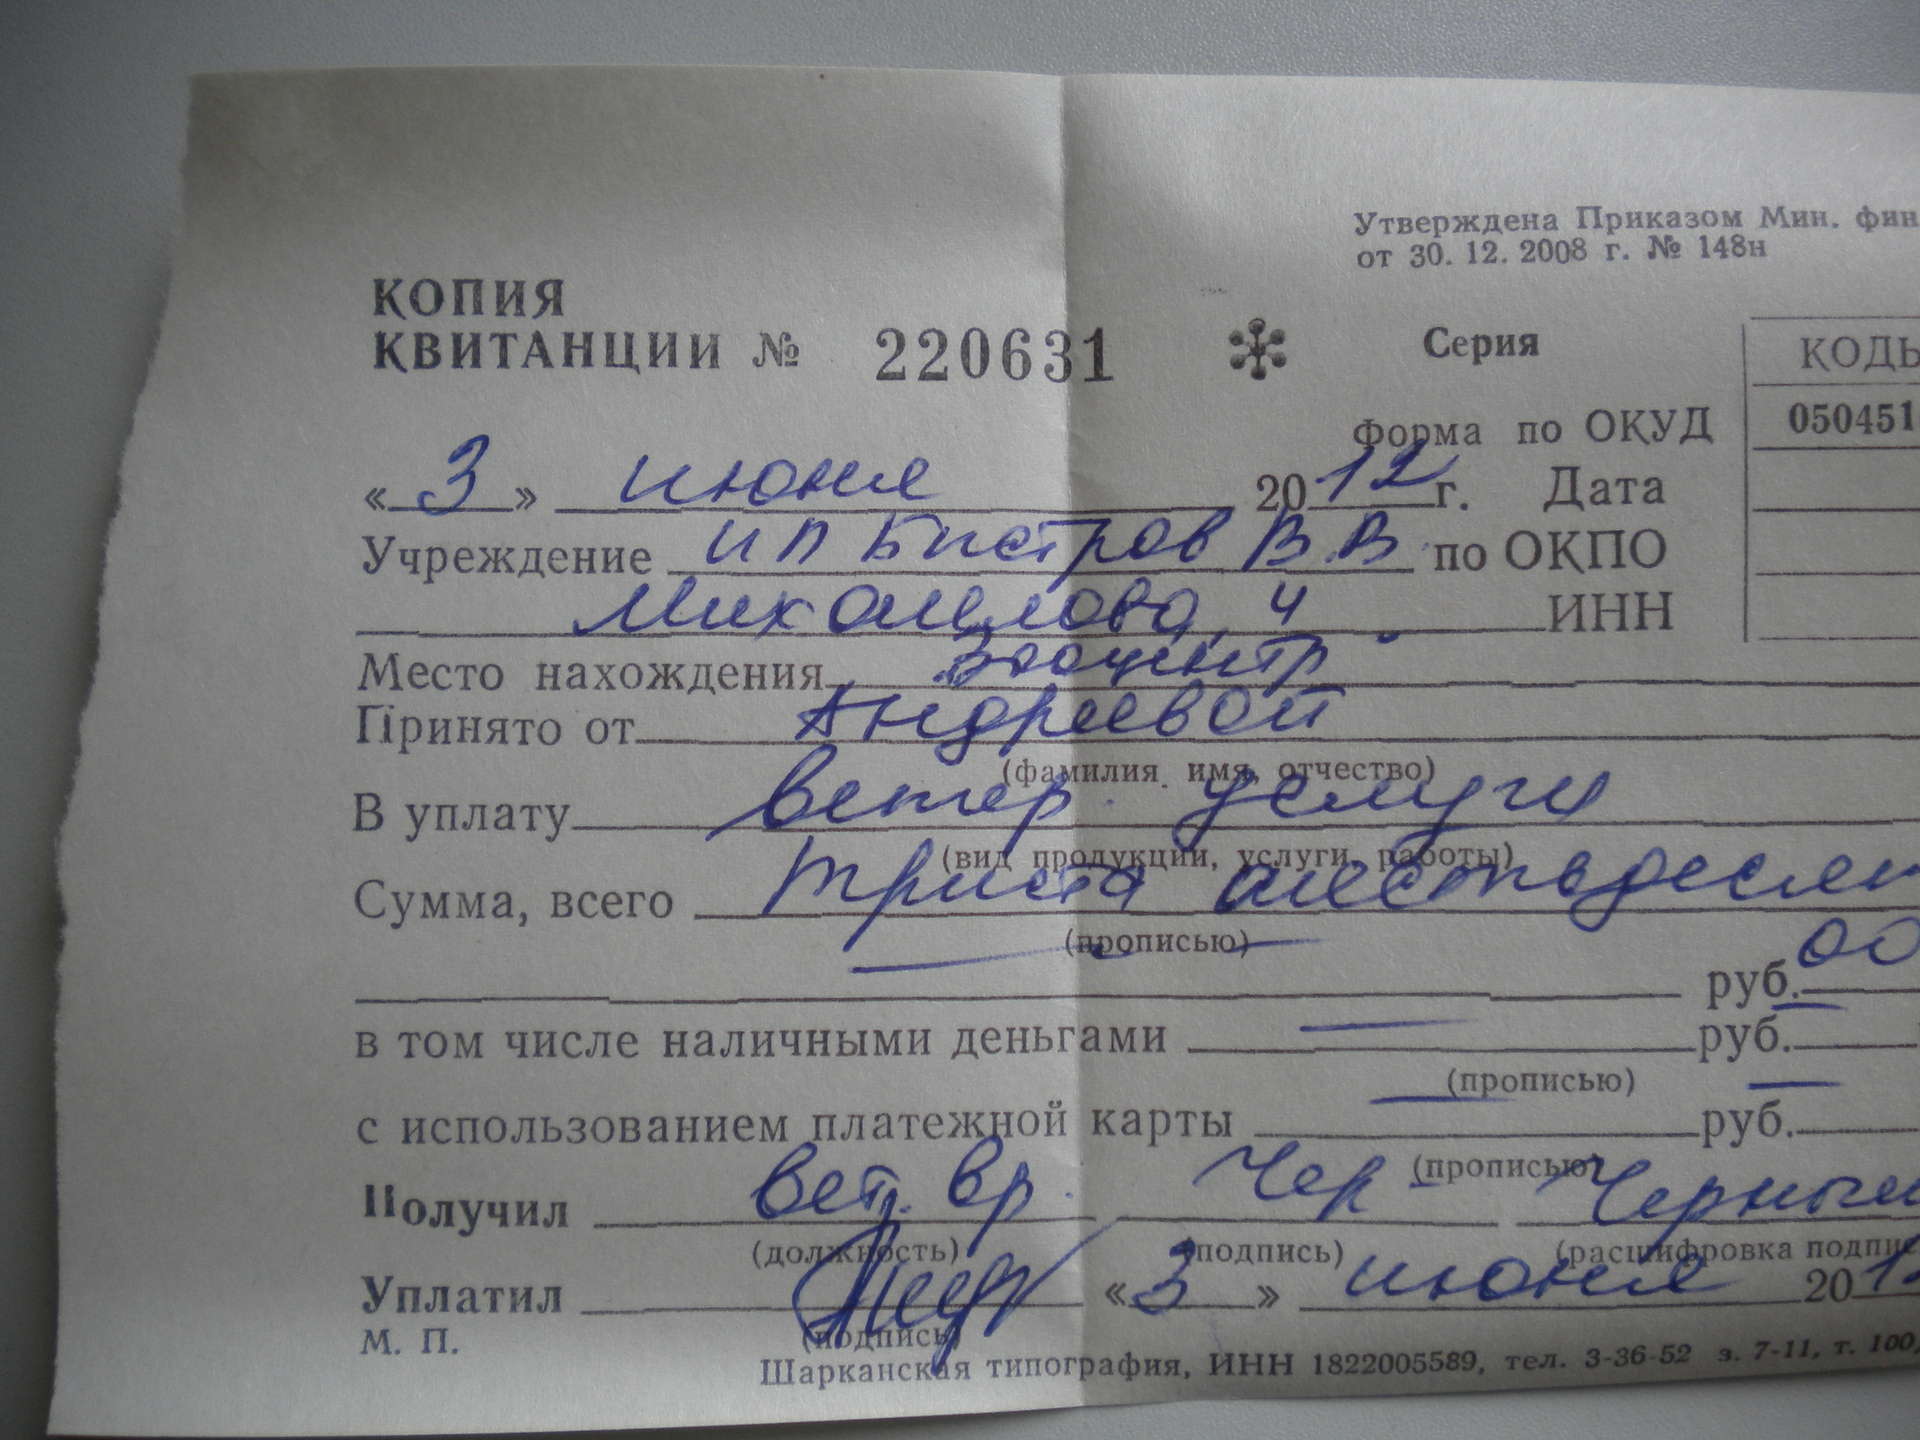 Утверждена Приказом Мин. фин
от 30. 12. 2008 г. № 148н
КОПИЯ
КВИТАНЦИИ № 220631 Серия
КОДЫ
Форма по ОКУД 050451
« 3 » июня 2012 г. Дата
Учреждение ИП Быстров В.В. по ОКПО
Михайлова, 4 ИНН
Место нахождения Зооцентр
Принято от Андреевой
(фамилия, имя, отчество)
В уплату ветер. услуги
(вид продукции, услуги, работы)
Сумма, всего триста шестьдесят
(прописью)
руб. 00
в том числе наличными деньгами — руб. —
(прописью)
с использованием платежной карты — руб. —
(прописью)
Получил вет. вр. Чер Черных
(должность) (подпись) (расшифровка подписи
Уплатил « 3 » июня 2012
М. П. (подпись)
Шарканская типография, ИНН 1822005589, тел. 3-36-52 з. 7-11, т. 100,